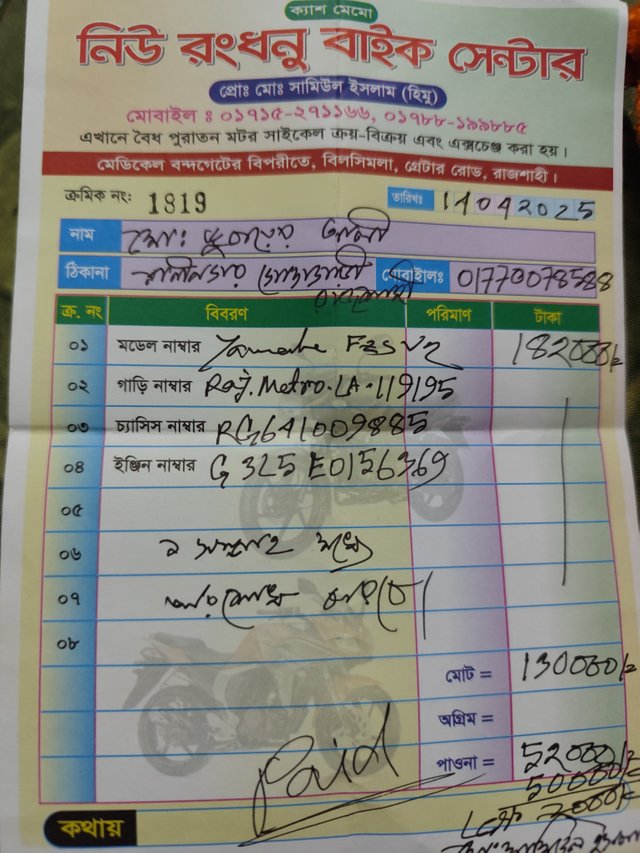 ক্যাশ মেমো
নিউ রংধনু বাইক সেন্টার
প্রোঃ মোঃ সামিউল ইসলাম (হিমু)
মোবাইল ঃ ০১৭১৫-২৭১১৬৬, ০১৭৮৮-১৯৯৮৮৫
এখানে বৈধ পুরাতন মটর সাইকেল ক্রয়-বিক্রয় এবং এক্সচেঞ্জ করা হয়।
মেডিকেল বন্দগেটের বিপরীতে, বিলসিমলা, গ্রেটার রোড, রাজশাহী।
ক্রমিক নং: 1819 তারিখঃ 14042025
নাম মো: আলী
ঠিকানা মোবাইলঃ 01770078588
ক্র. নং বিবরণ পরিমাণ টাকা
০১ মডেল নাম্বার Yamaha FZS V2 182000/=
০২ গাড়ি নাম্বার Raj. Metro. LA-119195
০৩ চ্যাসিস নাম্বার RG641009885
০৪ ইঞ্জিন নাম্বার G3L5E0156369
০৫
০৬ ১ সপ্তাহ মধ্যে
০৭
০৮
মোট = 130000/=
অগ্রিম =
পাওনা = 52000/=
50000/=
Less 2000/=
Paid
কথায়